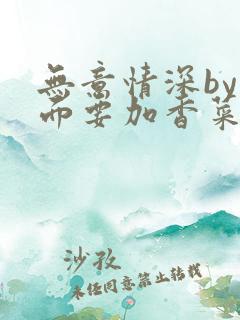 無意情深by
而要加香菜
沙孜
未经同意禁止转载